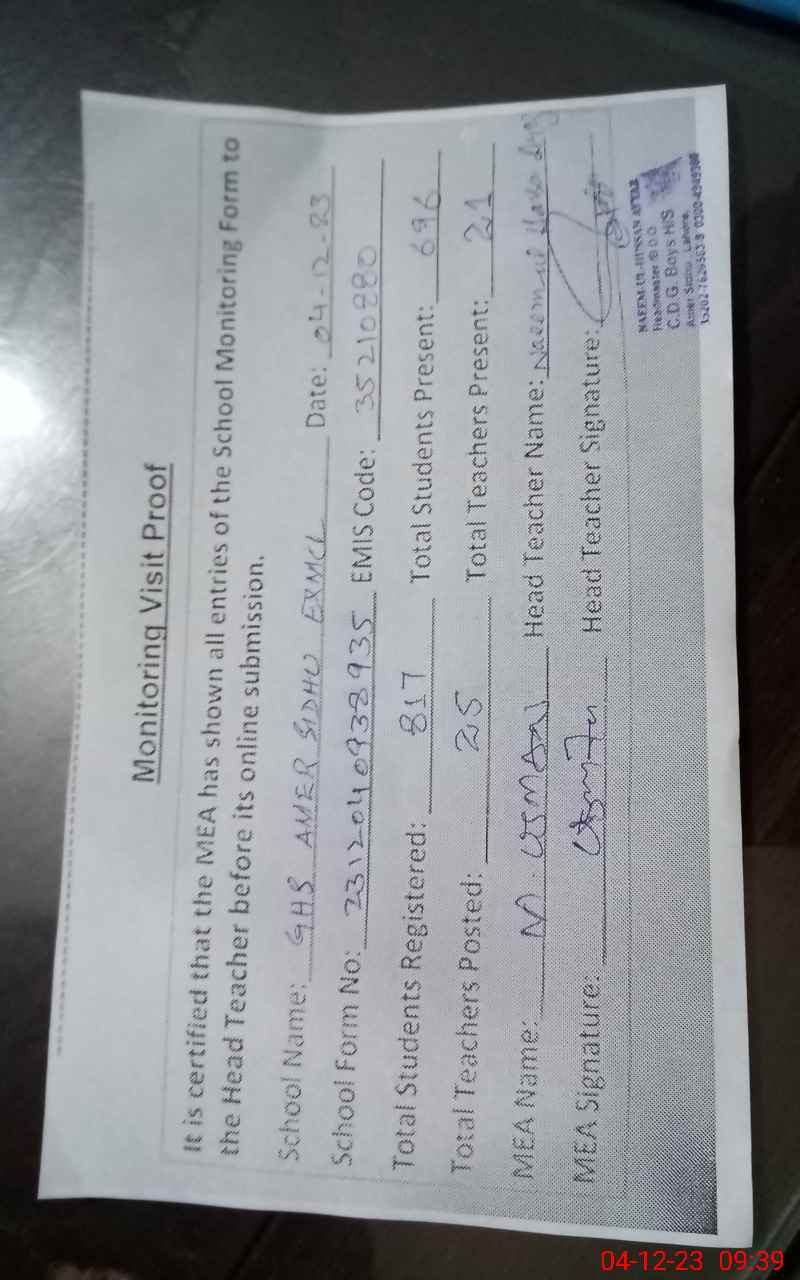 Monitoring Visit Proof
It is certified that the MEA has shown all entries of the School Monitoring Form to
the Head Teacher before its online submission.
School Name: GHS AMER SIDHU EXMCL Date: 04-12-23
School Form No: 2312040938935 EMIS Code: 35210880
Total Students Registered: 817 Total Students Present: 696
Total Teachers Posted: 25 Total Teachers Present: 21
MEA Name: M. USMAN Head Teacher Name: Naeem ul
MEA Signature: Usman Head Teacher Signature:
NAEEM-UL-HUSSAN AYYAZ
Headmaster
C.D.G. Boys H/S
Amer Sidhu, Lahore.
04-12-23 09:39